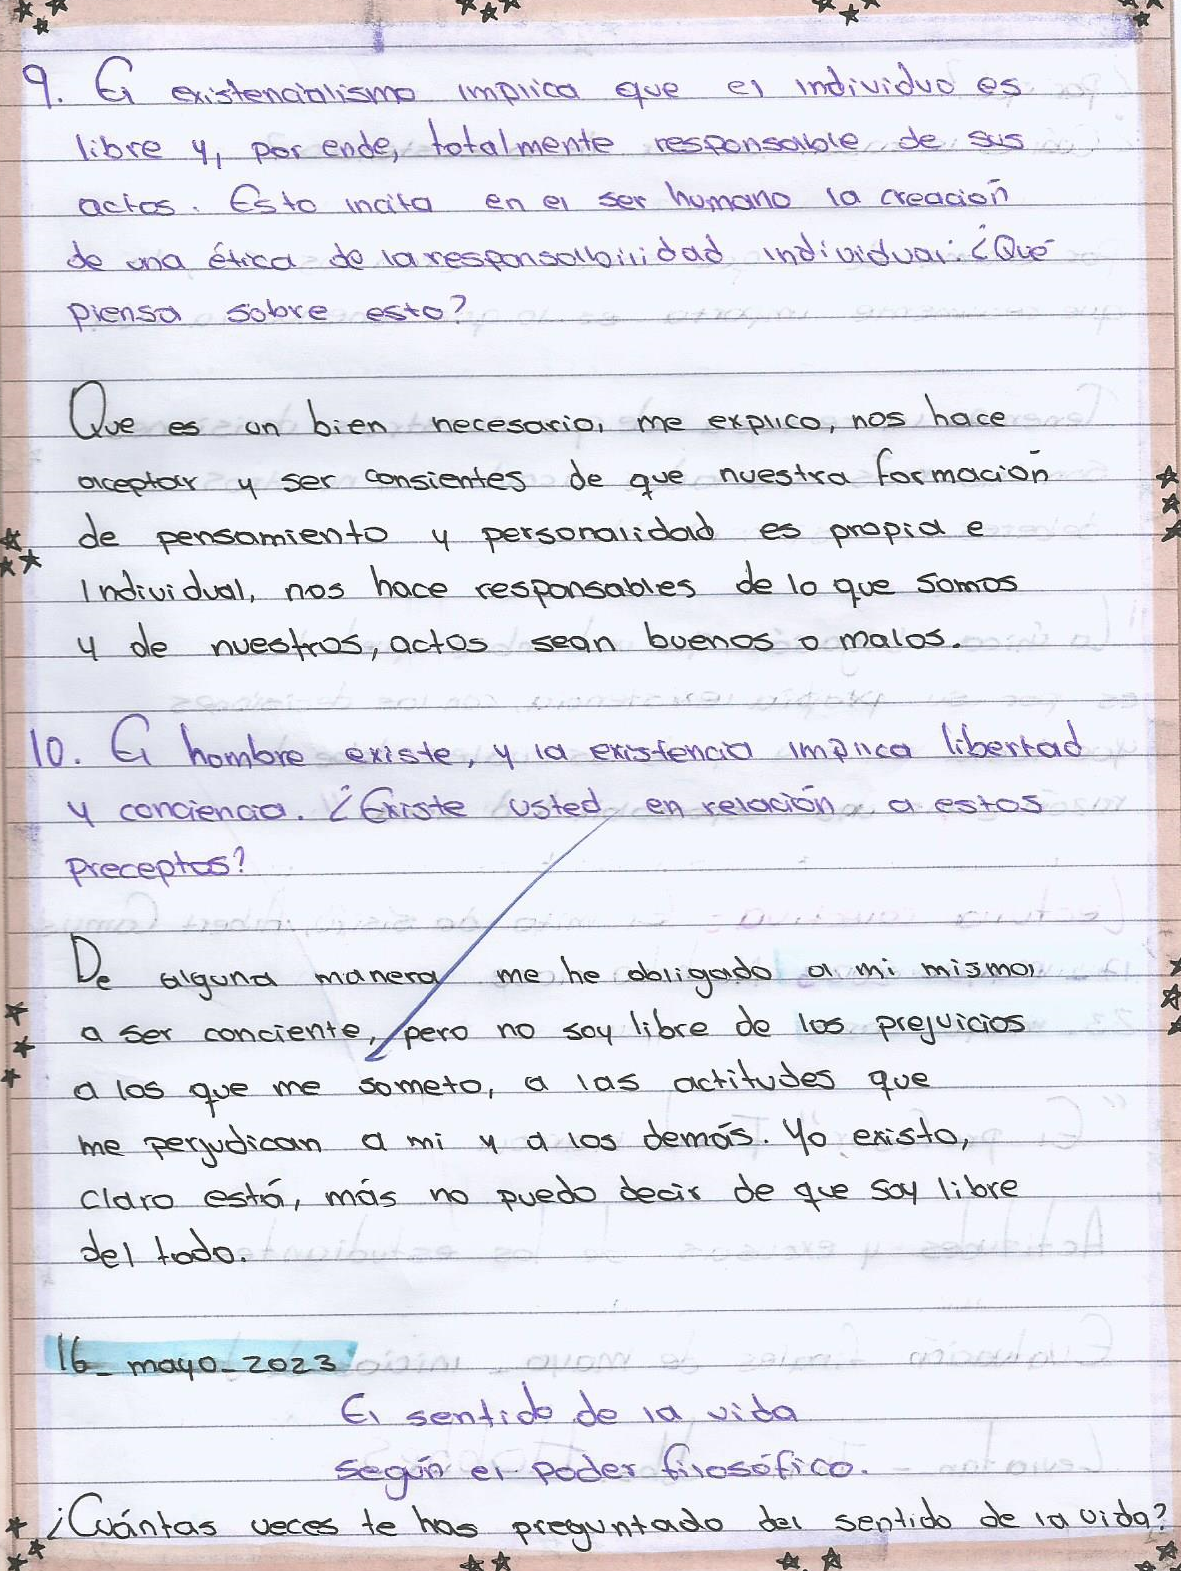 9. El existencialismo implica que el individuo es
libre y, por ende, totalmente responsable de sus
actos. Esto incita en el ser humano la creación
de una ética de la responsabilidad individual. ¿Qué
piensa sobre esto?
Que es un bien necesario, me explico, nos hace
aceptar y ser consientes de que nuestra formación
de pensamiento y personalidad es propia e
individual, nos hace responsables de lo que somos
y de nuestros, actos sean buenos o malos.
10. El hombre existe, y la existencia implica libertad
y conciencia. ¿Existe usted en relación a estos
preceptos?
De alguna manera me he obligado a mi misma
a ser conciente, pero no soy libre de los prejuicios
a los que me someto, a las actitudes que
me perjudican a mi y a los demás. Yo existo,
claro está, más no puedo decir de que soy libre
del todo.
16_mayo_2023
El sentido de la vida
según el poder filosófico.
¿Cuántas veces te has preguntado del sentido de la vida?